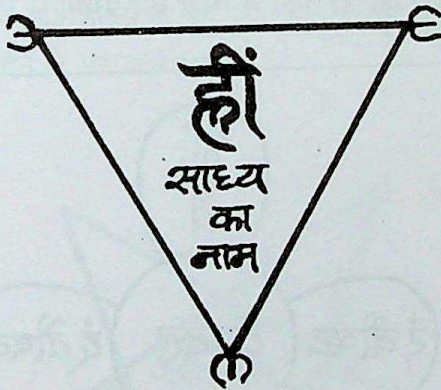 ह्रीं
साध्य
का
नाम